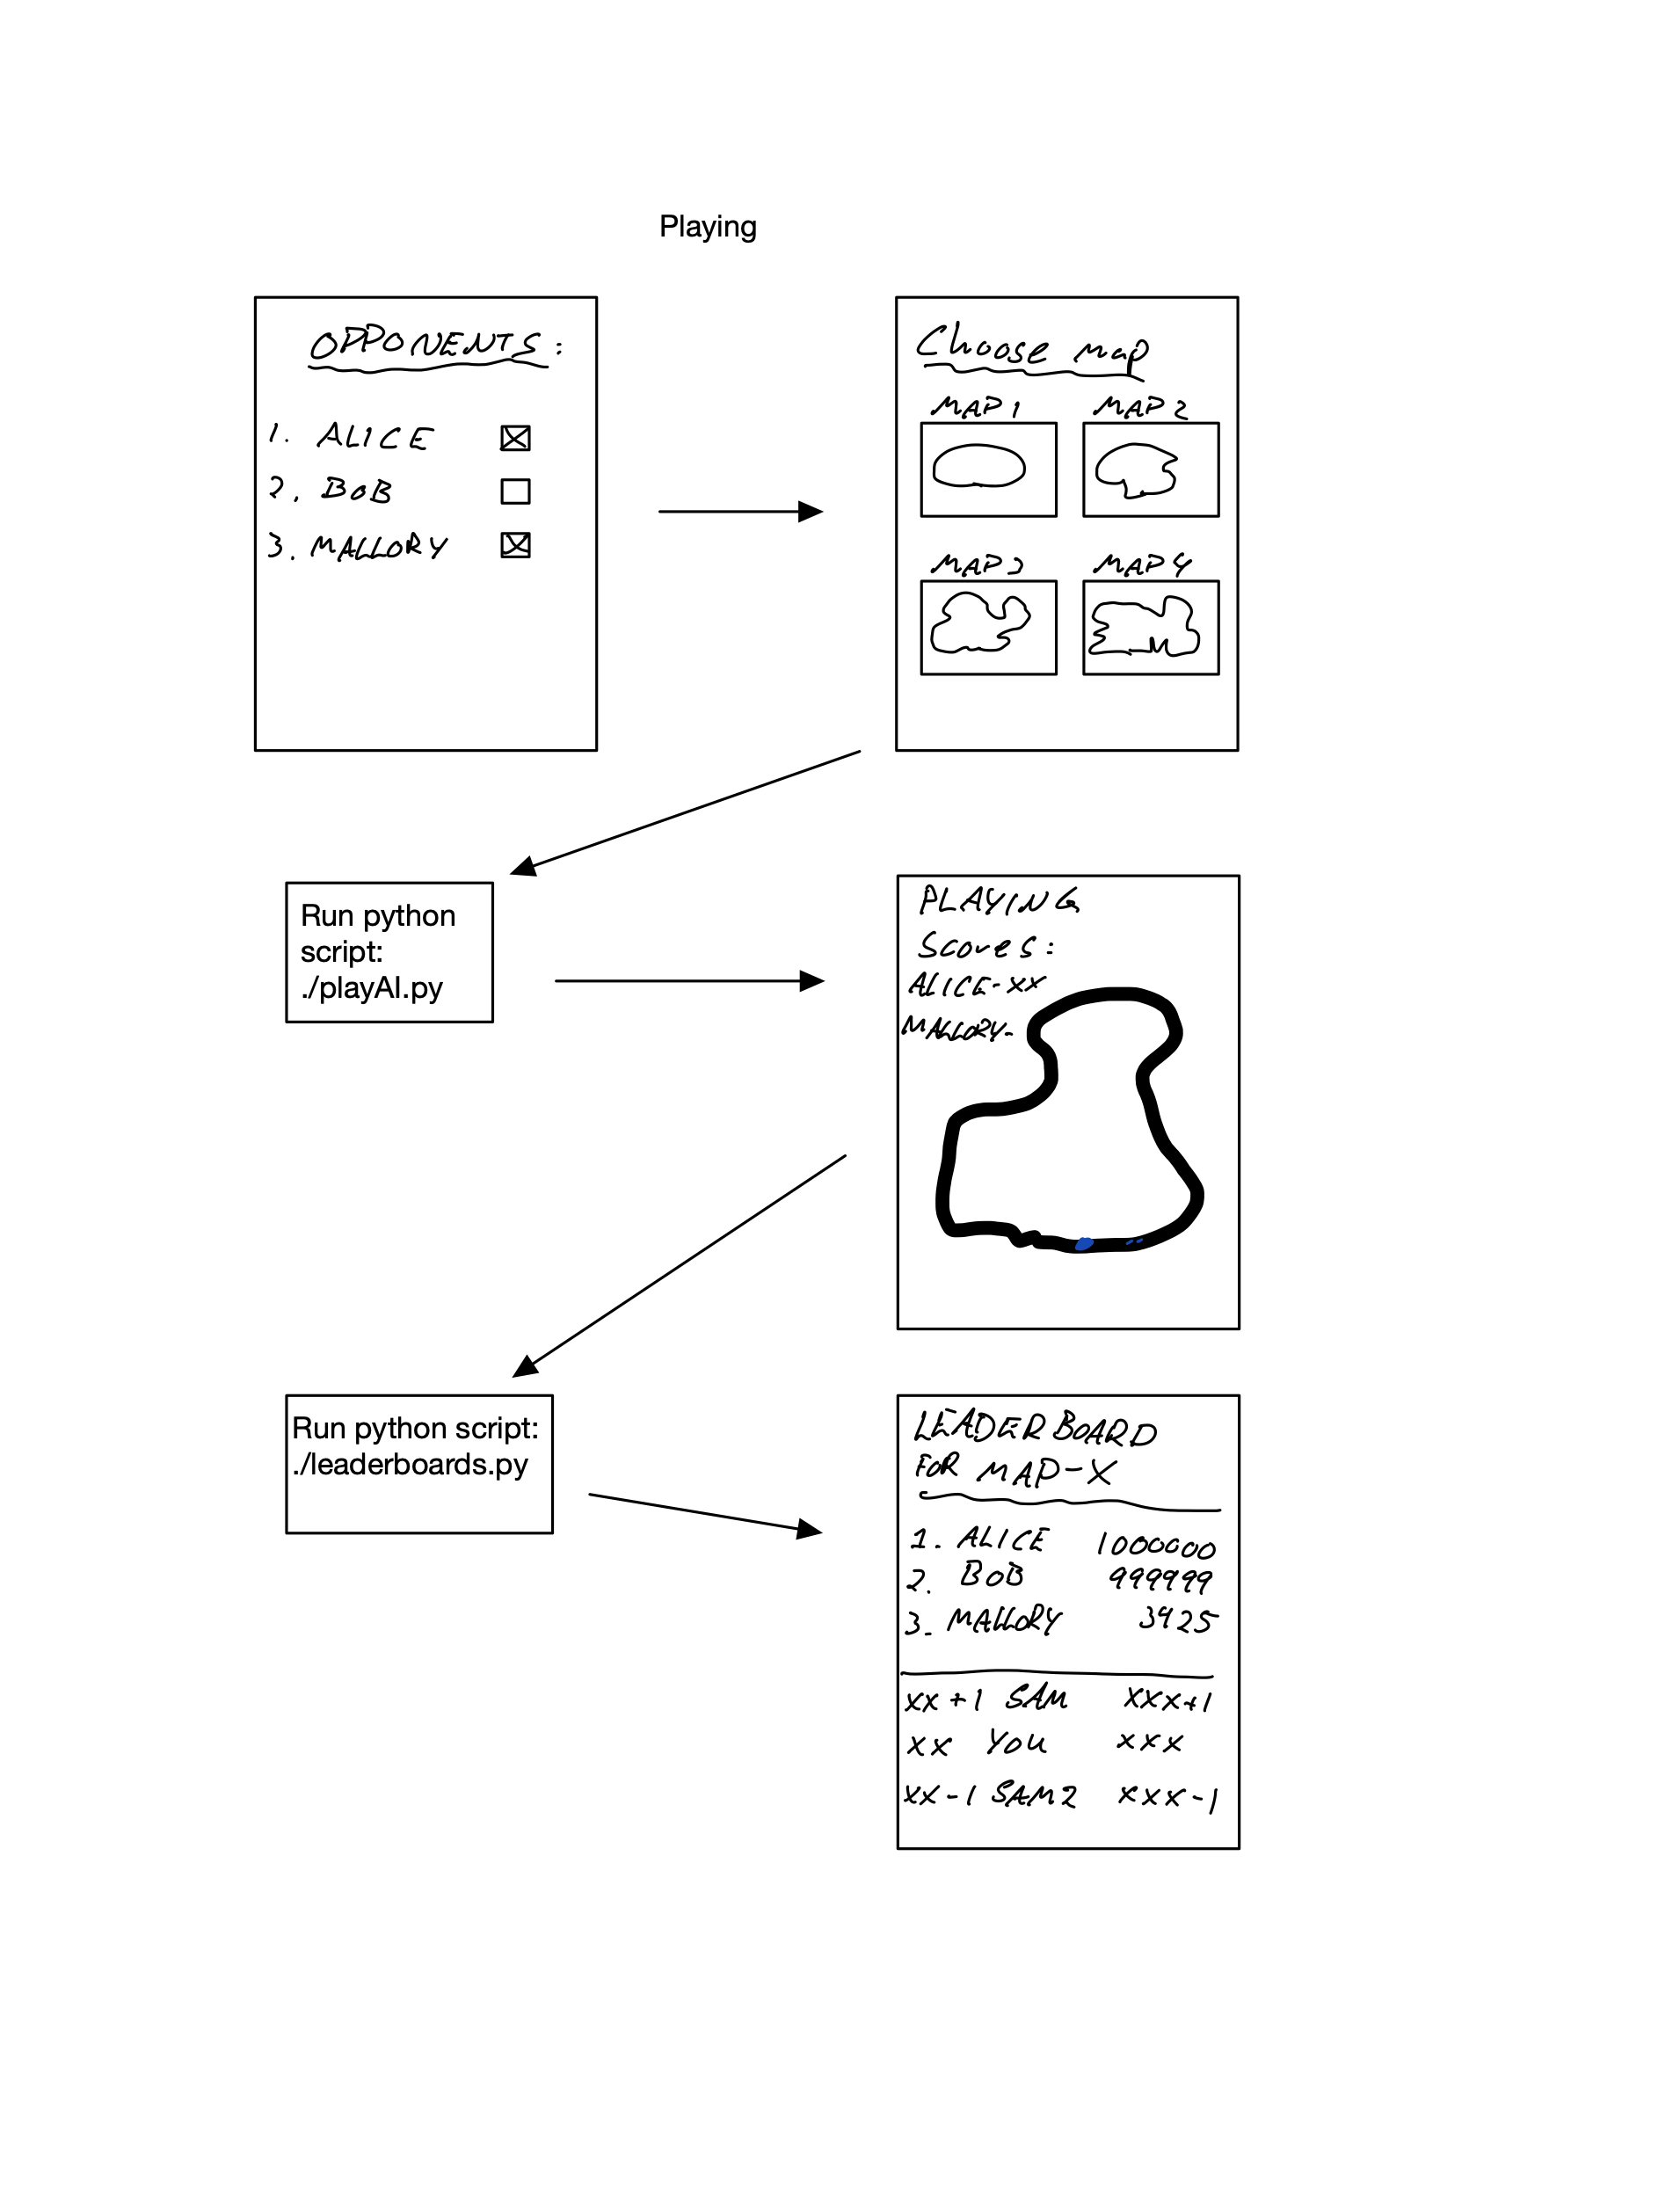 Playing
OPPONENTS:
1. ALICE
2. BOB
3. MALLORY
Choose map
MAP1 MAP2
MAP3 MAP4
Run python
script:
./playAI.py
PLAYING
Scores:
ALICE-xx
MALLORY-
Run python script:
./leaderboards.py
LEADERBOARD
FOR MAP-X
1. ALICE 1000000
2. BOB 999999
3. MALLORY 3925
xx+1 SAM xxx+1
xx YOU xxx
xx-1 SAM2 xxx-1